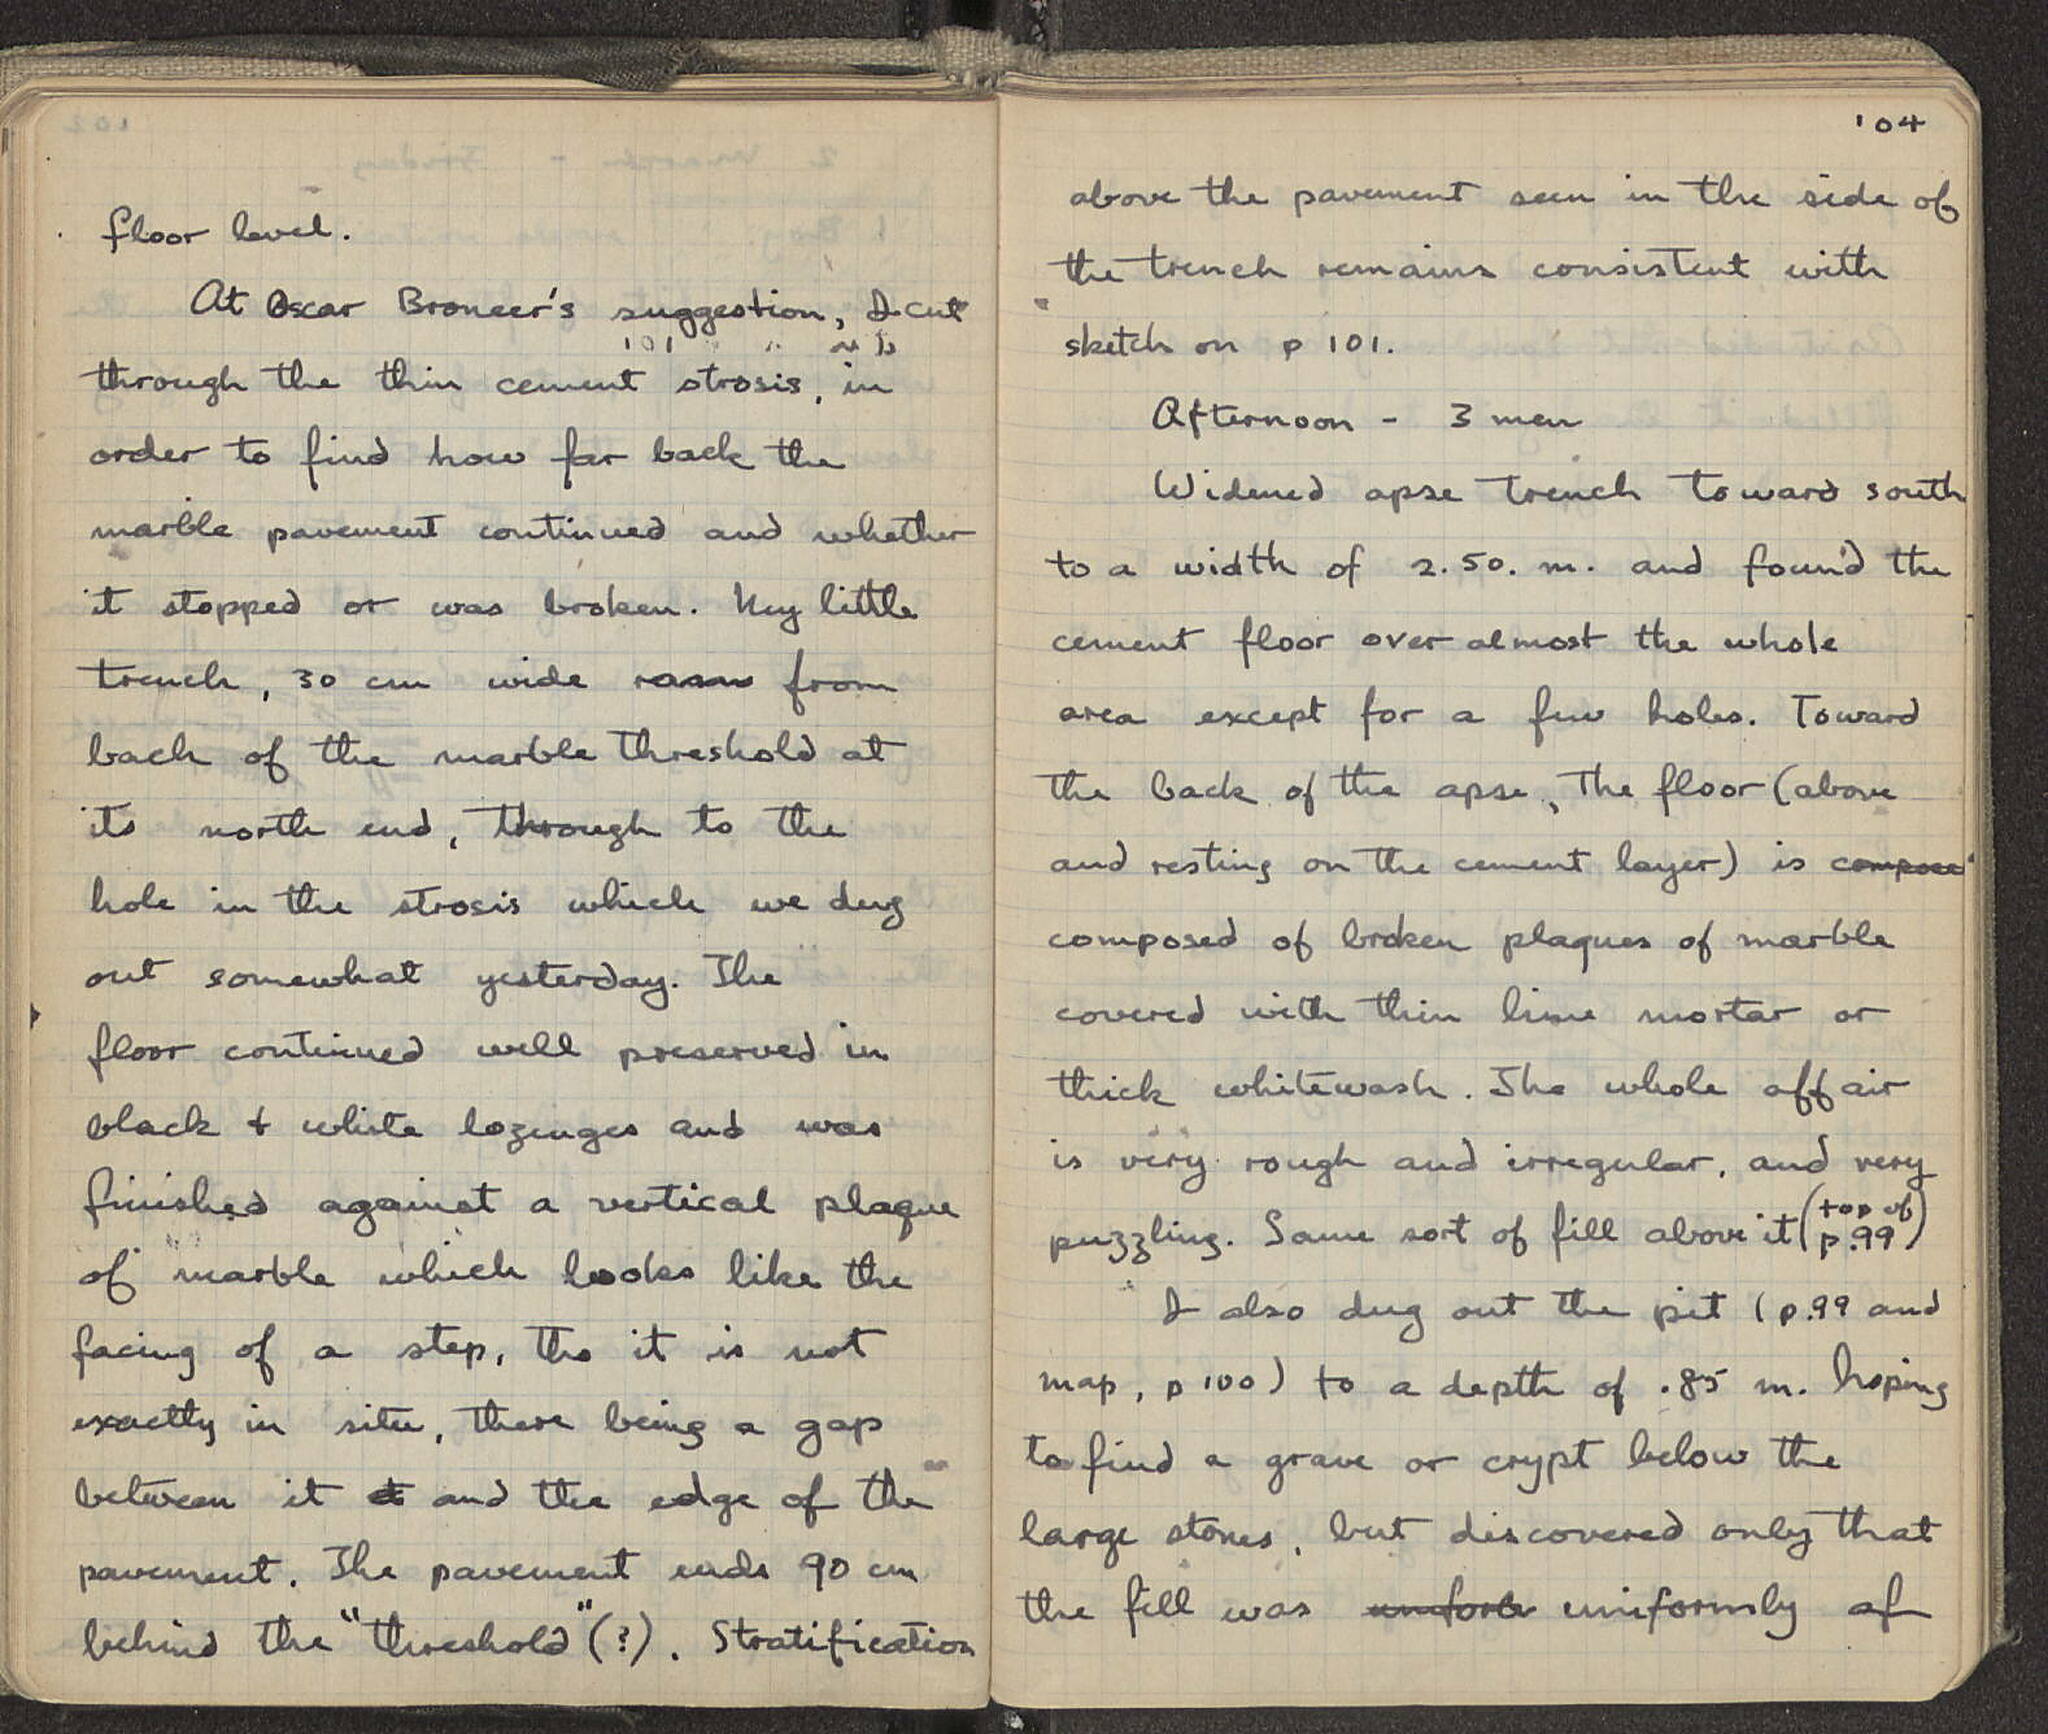 floor level.
At Oscar Broneer's suggestion, I cut
through the thin cement strosis, in
order to find how far back the
marble pavement continued and whether
it stopped or was broken. My little
trench, 30 cm wide from
back of the marble threshold at
its north end, through to the
hole in the strosis which we dug
out somewhat yesterday. The
floor continued well preserved in
black + white lozenges and was
finished against a vertical plaque
of marble which looks like the
facing of a step, tho it is not
exactly in situ, there being a gap
between it and the edge of the
pavement. The pavement ends 90 cm
behind the "threshold" (?). Stratification
104
above the pavement seen in the side of
the trench remains consistent with
sketch on p 101.
Afternoon - 3 men
Widened apse trench toward south
to a width of 2.50. m. and found the
cement floor over almost the whole
area except for a few holes. Toward
the back of the apse, the floor (above
and resting on the cement layer) is compose
composed of broken plaques of marble
covered with thin lime mortar or
thick whitewash. The whole affair
is very rough and irregular, and very
puzzling. Same sort of fill above it (top of p.99)
I also dug out the pit (p.99 and
map, p 100) to a depth of .85 m. hoping
to find a grave or crypt below the
large stones, but discovered only that
the fill was uniformly of